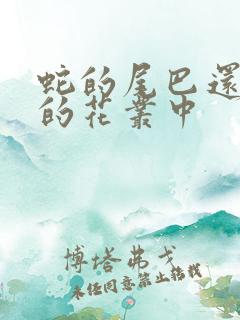 蛇的尾巴還
的花叢中
博塔弗戈
未經同意禁止搭訕